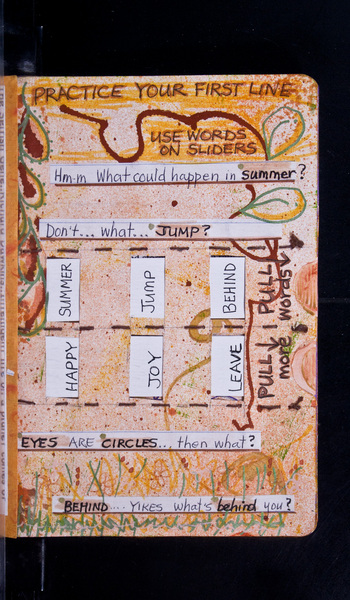 PRACTICE YOUR FIRST LINE
USE WORDS
ON SLIDERS
Hm-m What could happen in summer?
Don't... what... JUMP?
SUMMER
JUMP
BEHIND
PULL
more words
HAPPY
JOY
LEAVE
PULL
EYES ARE CIRCLES... then what?
BEHIND.... YIKES what's behind you?